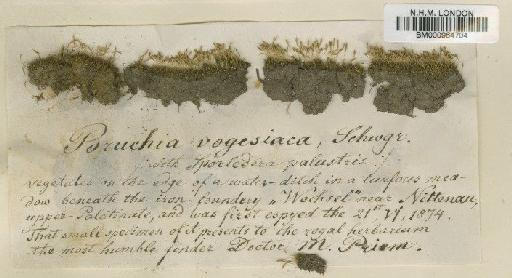 N.H.M. LONDON
BM000964704
Bruchia vogesiaca, Schwgr.
with Sporledera palustris
vegetates on the edge of a water-ditch in a turfous mea-
dow beneath the iron foundery „Weihsel" near Nittenau,
upper-Palatinate, and was first copyed the 21st VI. 1874.
That small specimen of it presents to the royal herbarium
the most humble sender Doctor M. Priem.